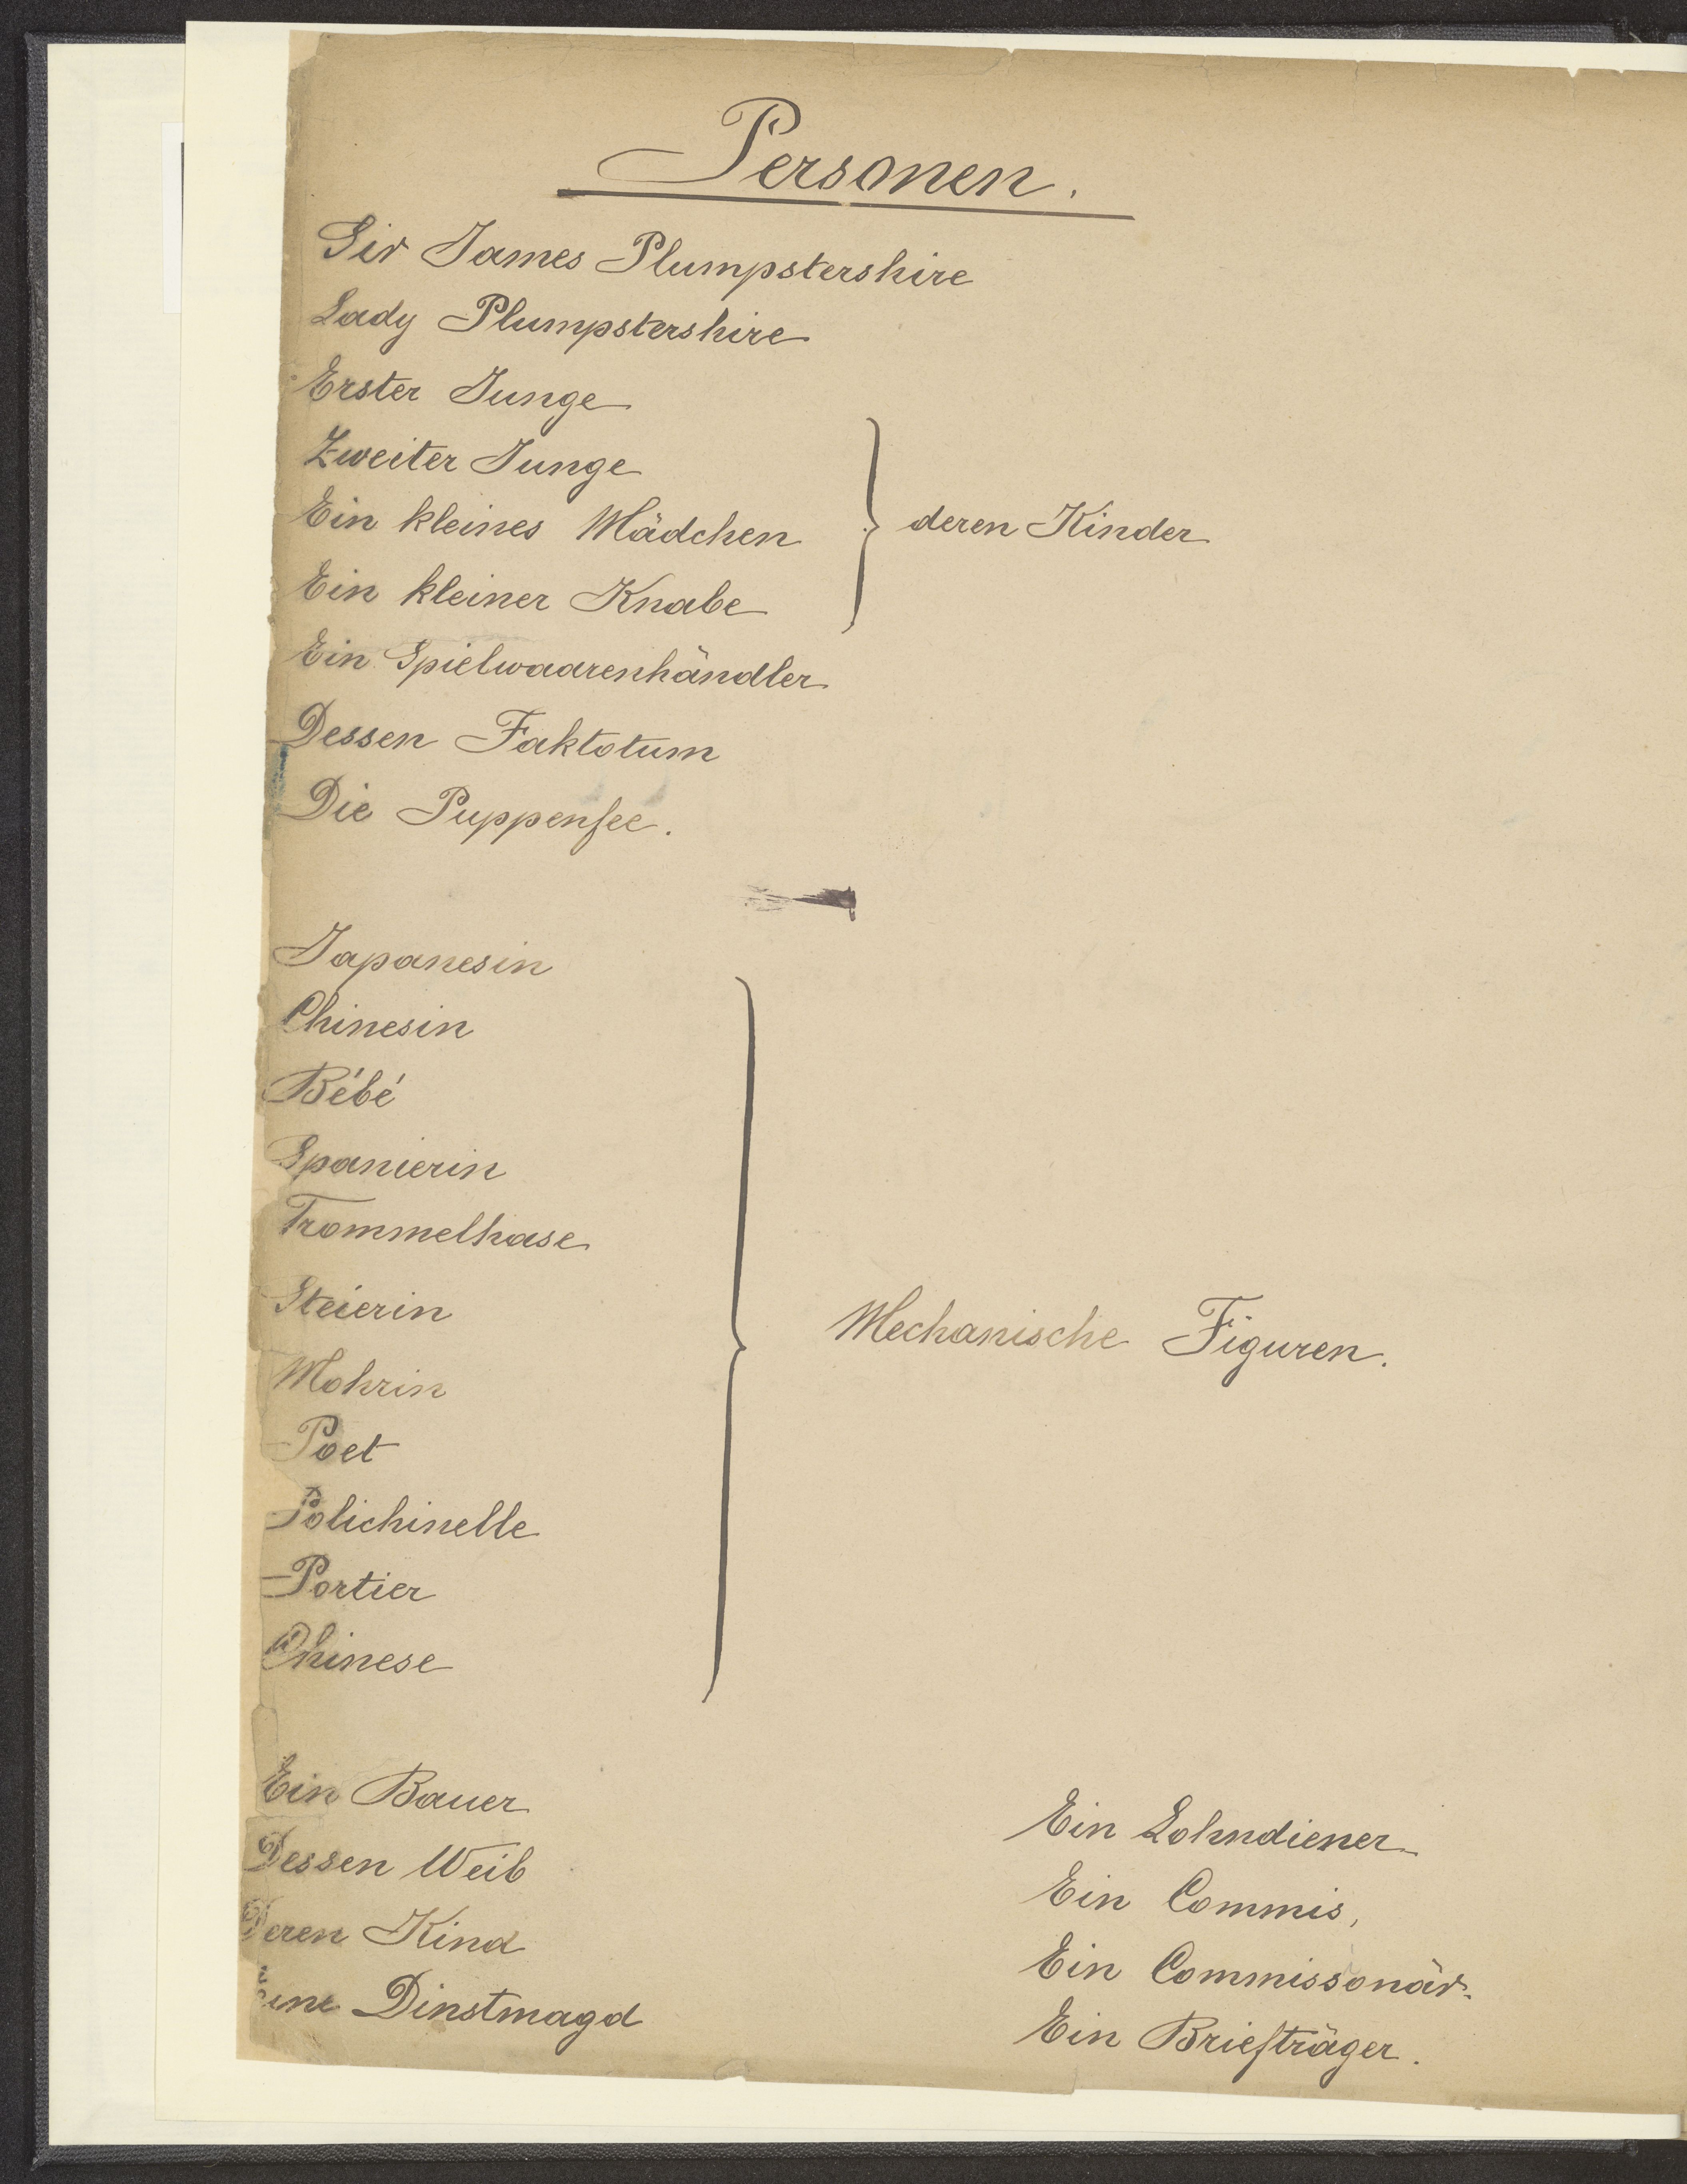 Personen.
Sir James Plumpstershire
Lady Plumpstershire
Erster Junge
Zweiter Junge
Ein kleines Mädchen
Ein kleiner Knabe
deren Kinder
Ein Spielwaarenhändler
Dessen Faktotum
Die Puppenfee.
Japanesin
Chinesin
Bébé
Spanierin
Trommelhase
Steierin
Mohrin
Poet
Polichinelle
Portier
Chinese
Mechanische Figuren.
Ein Bauer
Dessen Weib
Deren Kind
Eine Dinstmagd
Ein Lohndiener
Ein Commis,
Ein Commissonär.
Ein Briefträger.